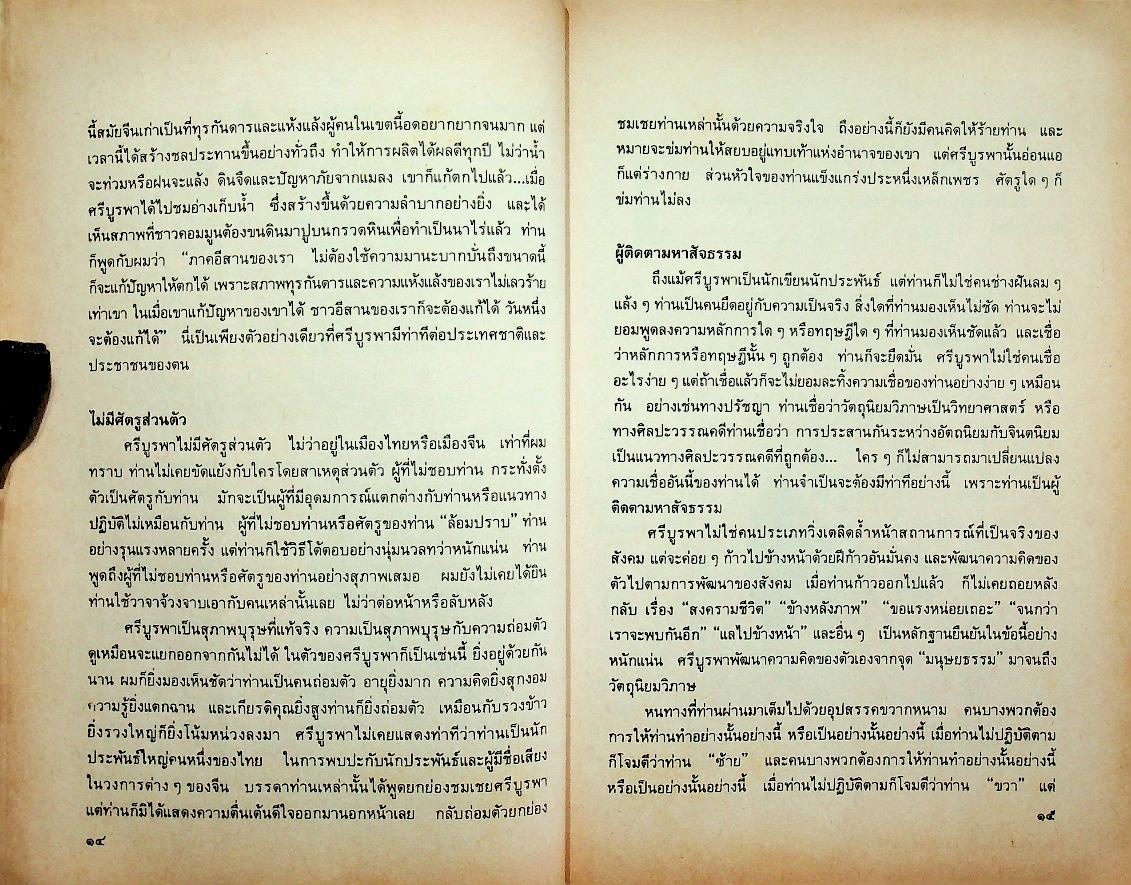 นี้สมัยจีนเก่าเป็นที่ทุรกันดารและแห้งแล้งผู้คนในเขตนี้อดอยากยากจนมาก แต่
เวลานี้ได้สร้างชลประทานขึ้นอย่างทั่วถึง ทำให้การผลิตได้ผลดีทุกปี ไม่ว่าน้ำ
จะท่วมหรือฝนจะแล้ง ดินจืดและปัญหาภัยจากแมลง เขาก็แก้ตกไปแล้ว...เมื่อ
ศรีบูรพาได้ไปชมอ่างเก็บน้ำ ซึ่งสร้างขึ้นด้วยความลำบากอย่างยิ่ง และได้
เห็นสภาพที่ชาวคอมมูนต้องขนดินมาปูบนกรวดหินเพื่อทำเป็นนาไร่แล้ว ท่าน
ก็พูดกับผมว่า “ภาคอีสานของเรา ไม่ต้องใช้ความมานะบากบั่นถึงขนาดนี้
ก็จะแก้ปัญหาให้ตกได้ เพราะสภาพทุรกันดารและความแห้งแล้งของเราไม่เลวร้าย
เท่าเขา ในเมื่อเขาแก้ปัญหาของเขาได้ ชาวอีสานของเราก็จะต้องแก้ได้ วันหนึ่ง
จะต้องแก้ได้” นี่เป็นเพียงตัวอย่างเดียวที่ศรีบูรพามีท่าทีต่อประเทศชาติและ
ประชาชนของตน
ไม่มีศัตรูส่วนตัว
ศรีบูรพาไม่มีศัตรูส่วนตัว ไม่ว่าอยู่ในเมืองไทยหรือเมืองจีน เท่าที่ผม
ทราบ ท่านไม่เคยขัดแย้งกับใครโดยสาเหตุส่วนตัว ผู้ที่ไม่ชอบท่าน กระทั่งตั้ง
ตัวเป็นศัตรูกับท่าน มักจะเป็นผู้ที่มีอุดมการณ์แตกต่างกับท่านหรือแนวทาง
ปฏิบัติไม่เหมือนกับท่าน ผู้ที่ไม่ชอบท่านหรือศัตรูของท่าน “ล้อมปราบ” ท่าน
อย่างรุนแรงหลายครั้ง แต่ท่านก็ใช้วิธีโต้ตอบอย่างนุ่มนวลทว่าหนักแน่น ท่าน
พูดถึงผู้ที่ไม่ชอบท่านหรือศัตรูของท่านอย่างสุภาพเสมอ ผมยังไม่เคยได้ยิน
ท่านใช้วาจาจ้วงจาบเอากับคนเหล่านั้นเลย ไม่ว่าต่อหน้าหรือลับหลัง
ศรีบูรพาเป็นสุภาพบุรุษที่แท้จริง ความเป็นสุภาพบุรุษกับความถ่อมตัว
ดูเหมือนจะแยกออกจากกันไม่ได้ ในตัวของศรีบูรพาก็เป็นเช่นนี้ ยิ่งอยู่ด้วยกัน
นาน ผมก็ยิ่งมองเห็นชัดว่าท่านเป็นคนถ่อมตัว อายุยิ่งมาก ความคิดยิ่งสุกงอม
ความรู้ยิ่งแตกฉาน และเกียรติคุณยิ่งสูงท่านก็ยิ่งถ่อมตัว เหมือนกับรวงข้าว
ยิ่งรวงใหญ่ก็ยิ่งโน้มหน่วงลงมา ศรีบูรพาไม่เคยแสดงท่าทีว่าท่านเป็นนัก
ประพันธ์ใหญ่คนหนึ่งของไทย ในการพบปะกับนักประพันธ์และผู้มีชื่อเสียง
ในวงการต่าง ๆ ของจีน บรรดาท่านเหล่านั้นได้พูดยกย่องชมเชยศรีบูรพา
แต่ท่านก็มิได้แสดงความตื่นเต้นดีใจออกมานอกหน้าเลย กลับถ่อมตัวยกย่อง
๑๔
ชมเชยท่านเหล่านั้นด้วยความจริงใจ ถึงอย่างนี้ก็ยังมีคนคิดให้ร้ายท่าน และ
หมายจะข่มท่านให้สยบอยู่แทบเท้าแห่งอำนาจของเขา แต่ศรีบูรพานั้นอ่อนแอ
ก็แต่ร่างกาย ส่วนหัวใจของท่านแข็งแกร่งประหนึ่งเหล็กเพชร ศัตรูใด ๆ ก็
ข่มท่านไม่ลง
ผู้ติดตามหาสัจธรรม
ถึงแม้ศรีบูรพาเป็นนักเขียนนักประพันธ์ แต่ท่านก็ไม่ใช่คนช่างฝันลม ๆ
แล้ง ๆ ท่านเป็นคนยึดอยู่กับความเป็นจริง สิ่งใดที่ท่านมองเห็นไม่ชัด ท่านจะไม่
ยอมพูดลงความหลักการใด ๆ หรือทฤษฎีใด ๆ ที่ท่านมองเห็นชัดแล้ว และเชื่อ
ว่าหลักการหรือทฤษฎีนั้น ๆ ถูกต้อง ท่านก็จะยึดมั่น ศรีบูรพาไม่ใช่คนเชื่อ
อะไรง่าย ๆ แต่ถ้าเชื่อแล้วก็จะไม่ยอมละทิ้งความเชื่อของท่านอย่างง่าย ๆ เหมือน
กัน อย่างเช่นทางปรัชญา ท่านเชื่อว่าวัตถุนิยมวิภาษเป็นวิทยาศาสตร์ หรือ
ทางศิลปะวรรณคดีท่านเชื่อว่า การประสานกันระหว่างอัตถนิยมกับจินตนิยม
เป็นแนวทางศิลปะวรรณคดีที่ถูกต้อง... ใคร ๆ ก็ไม่สามารถมาเปลี่ยนแปลง
ความเชื่ออันนี้ของท่านได้ ท่านจำเป็นจะต้องมีท่าทีอย่างนี้ เพราะท่านเป็นผู้
ติดตามหาสัจธรรม
ศรีบูรพาไม่ใช่คนประเภทวิ่งเตลิดล้ำหน้าสถานการณ์ที่เป็นจริงของ
สังคม แต่จะค่อย ๆ ก้าวไปข้างหน้าด้วยฝีก้าวอันมั่นคง และพัฒนาความคิดของ
ตัวไปตามการพัฒนาของสังคม เมื่อท่านก้าวออกไปแล้ว ก็ไม่เคยถอยหลัง
กลับ เรื่อง “สงครามชีวิต” “ข้างหลังภาพ” “ขอแรงหน่อยเถอะ” “จนกว่า
เราจะพบกันอีก” “แลไปข้างหน้า” และอื่น ๆ เป็นหลักฐานยืนยันในข้อนี้อย่าง
หนักแน่น ศรีบูรพาพัฒนาความคิดของตัวเองจากจุด “มนุษยธรรม” มาจนถึง
วัตถุนิยมวิภาษ
หนทางที่ท่านผ่านมาเต็มไปด้วยอุปสรรคขวากหนาม คนบางพวกต้อง
การให้ท่านทำอย่างนั้นอย่างนี้ หรือเป็นอย่างนั้นอย่างนี้ เมื่อท่านไม่ปฏิบัติตาม
ก็โจมตีว่าท่าน “ซ้าย” และคนบางพวกต้องการให้ท่านทำอย่างนั้นอย่างนี้
หรือเป็นอย่างนั้นอย่างนี้ เมื่อท่านไม่ปฏิบัติตามก็โจมตีว่าท่าน “ขวา” แต่
๑๕